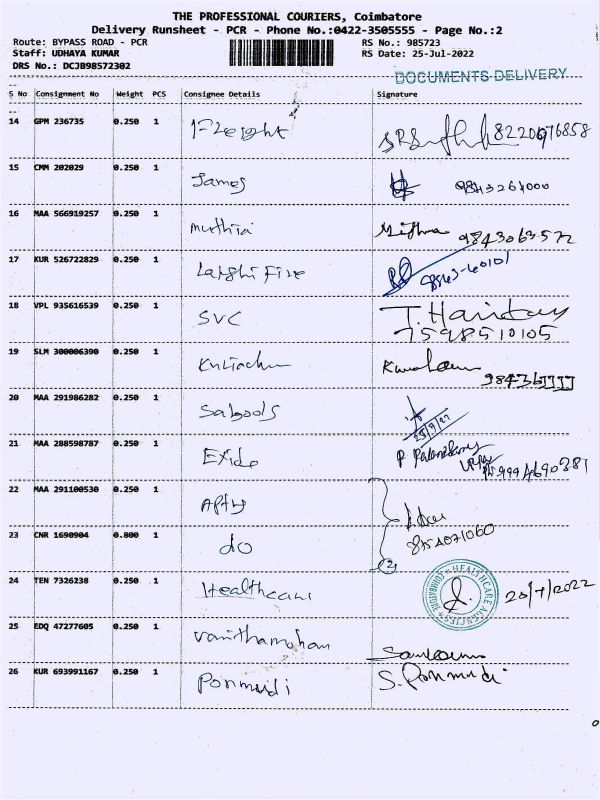 THE PROFESSIONAL COURIERS, Coimbatore
Delivery Runsheet - PCR - Phone No.:0422-3505555 - Page No.:2
Route: BYPASS ROAD - PCR RS No.: 985723
Staff: UDHAYA KUMAR RS Date: 25-Jul-2022
DRS No.: DCJB98572302
DOCUMENTS DELIVERY
S No Consignment No Weight PCS Consignee Details Signature
14 GPM 236735 0.250 1 Freight 8220676858
15 CMM 202029 0.250 1 James 9843261000
16 MAA 566919257 0.250 1 muthia 9843063572
17 KUR 526722829 0.250 1 Lakshi Fire 98943-60101
18 VPL 935616539 0.250 1 SVC T. Hariday
7598510105
19 SLM 300006390 0.250 1
20 MAA 291986282 0.250 1 Salgods
21 MAA 288598787 0.250 1 Exide P Palanisamy
22 MAA 291100530 0.250 1
23 CNR 1690904 0.800 1 do
2
24 TEN 7326238 0.250 1 Healthcare HEALTHCARE AGENCIES COIMBATORE
25 EDQ 47277605 0.250 1 Vanithamohan
26 KUR 693991167 0.250 1 Ponmudi S. Ponmudi